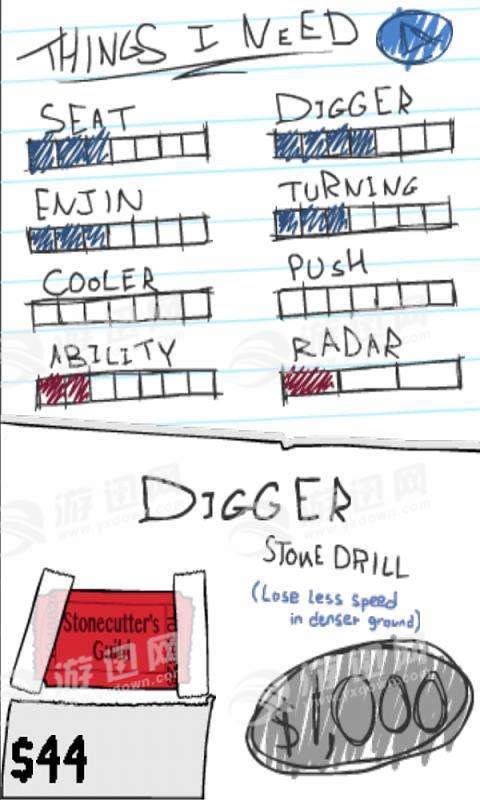 THINGS I NEED
SEAT
DIGGER
ENJIN
TURNING
COOLER
PUSH
ABILITY
RADAR
DIGGER
STONE DRILL
(Lose less speed
in denser ground)
Stonecutter's
Guild
$1,000
$44
游迅网
www.yxdown.com